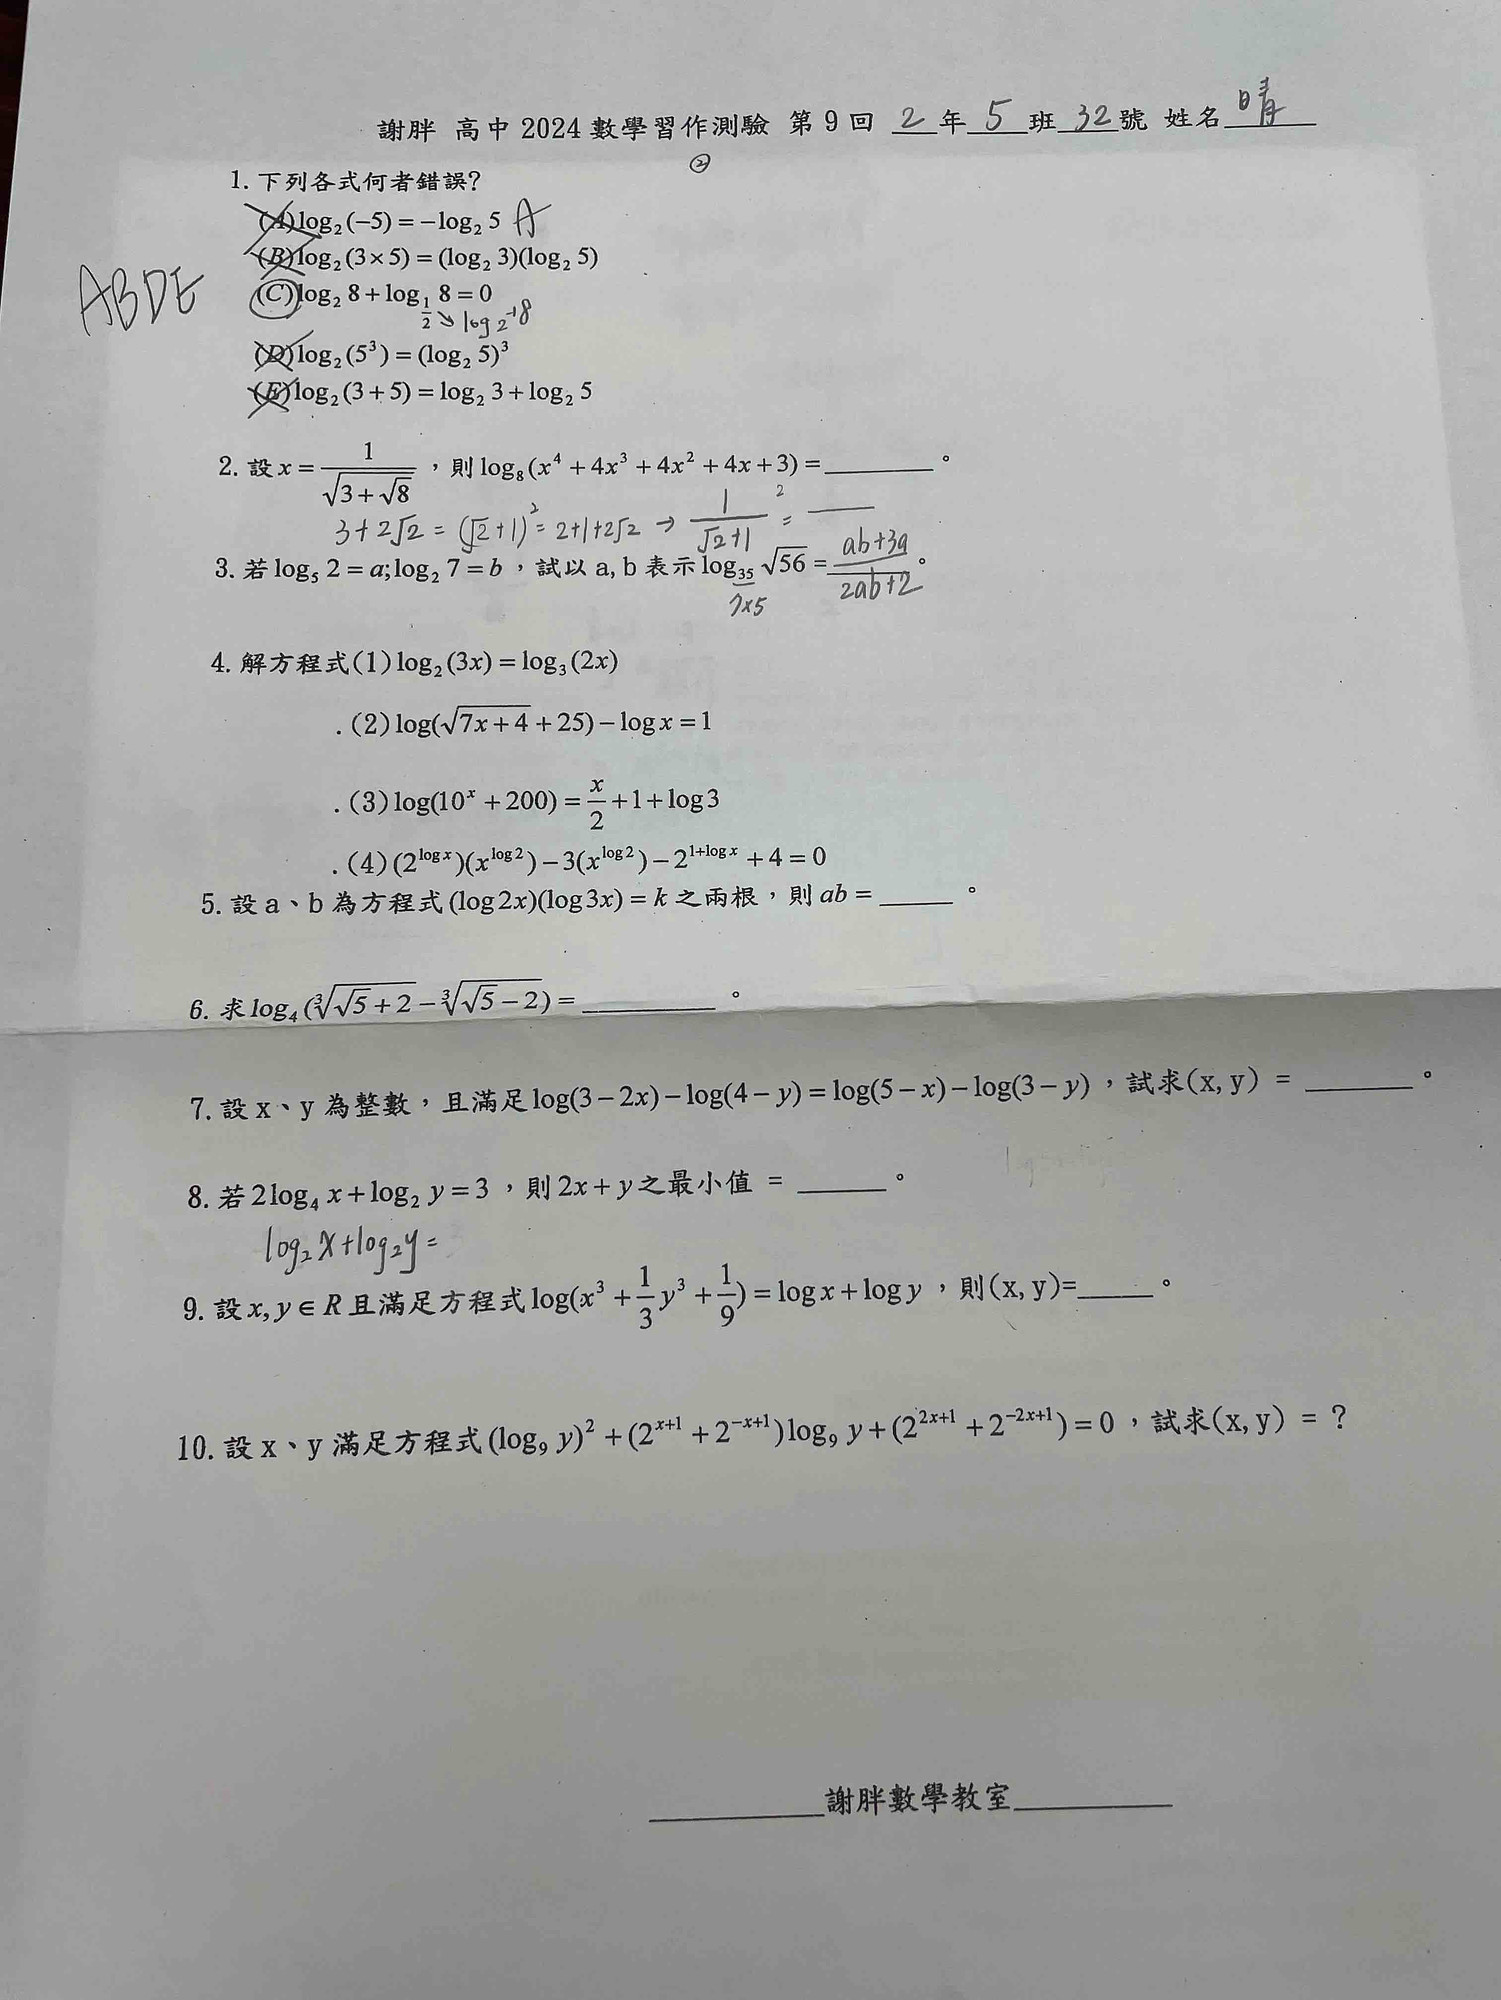 謝胖 高中 2024 數學習作測驗 第 9 回 2 年 5 班 32 號 姓名 晴
②
1. 下列各式何者錯誤?
(A) log₂(−5) = −log₂ 5 A
(B) log₂(3×5) = (log₂ 3)(log₂ 5)
ABDE
(C) log₂ 8 + log_{1/2} 8 = 0
↘ log 2⁻¹ 8
(D) log₂(5³) = (log₂ 5)³
(E) log₂(3+5) = log₂ 3 + log₂ 5
2. 設 x = 1/√(3+√8) ,則 log₈(x⁴ + 4x³ + 4x² + 4x + 3) = ________ 。
3+2√2 = (√2+1)² = 2+1+2√2 → 1/(√2+1) ² = ——
3. 若 log₅ 2 = a; log₂ 7 = b ,試以 a, b 表示 log₃₅ √56 = (ab+3a)/(2ab+2) 。
7×5
4. 解方程式(1) log₂(3x) = log₃(2x)
.(2) log(√(7x+4) + 25) − log x = 1
.(3) log(10ˣ + 200) = x/2 + 1 + log 3
.(4) (2^{log x})(x^{log 2}) − 3(x^{log 2}) − 2^{1+log x} + 4 = 0
5. 設 a、b 為方程式 (log 2x)(log 3x) = k 之兩根,則 ab = _____ 。
6. 求 log₄(∛(√5+2) − ∛(√5−2)) = ________ 。
7. 設 x、y 為整數,且滿足 log(3−2x) − log(4−y) = log(5−x) − log(3−y) ,試求(x, y) = ________ 。
8. 若 2log₄ x + log₂ y = 3 ,則 2x + y 之最小值 = ______ 。
log₂x+log₂y =
9. 設 x, y ∈ R 且滿足方程式 log(x³ + 1/3 y³ + 1/9) = log x + log y ,則(x, y)=_____ 。
10. 設 x、y 滿足方程式 (log₉ y)² + (2^{x+1} + 2^{−x+1}) log₉ y + (2^{2x+1} + 2^{−2x+1}) = 0 ,試求(x, y) = ?
__________謝胖數學教室__________